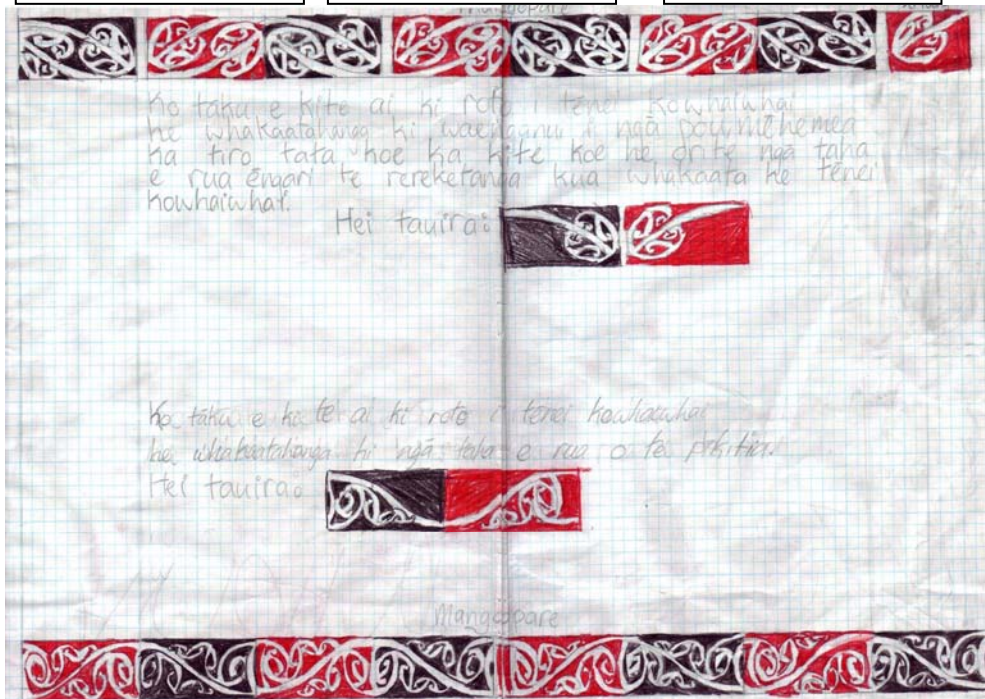 Mangopare
Ko taku e kite ai ki roto i tenei kowhaiwhai
he whakaatahanga ki waenganui i ngā pou, mehemea
ka tiro tata koe ka kite koe he ōrite ngā taha
e rua engari te rereketanga kua whakaata ke tēnei
kowhaiwhai.
Hei tauira:
Ko tāku e kitei ai ki roto i tenei kowhaiwhai
he whakaatahanga ki ngā taha e rua o te pikitia.
Hei tauira:
Mangopare